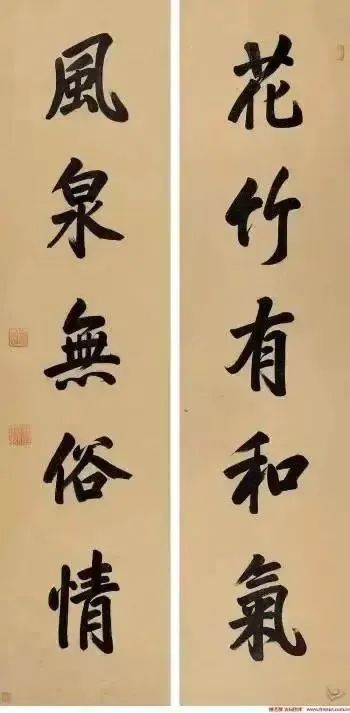 花竹有和氣
風泉無俗情